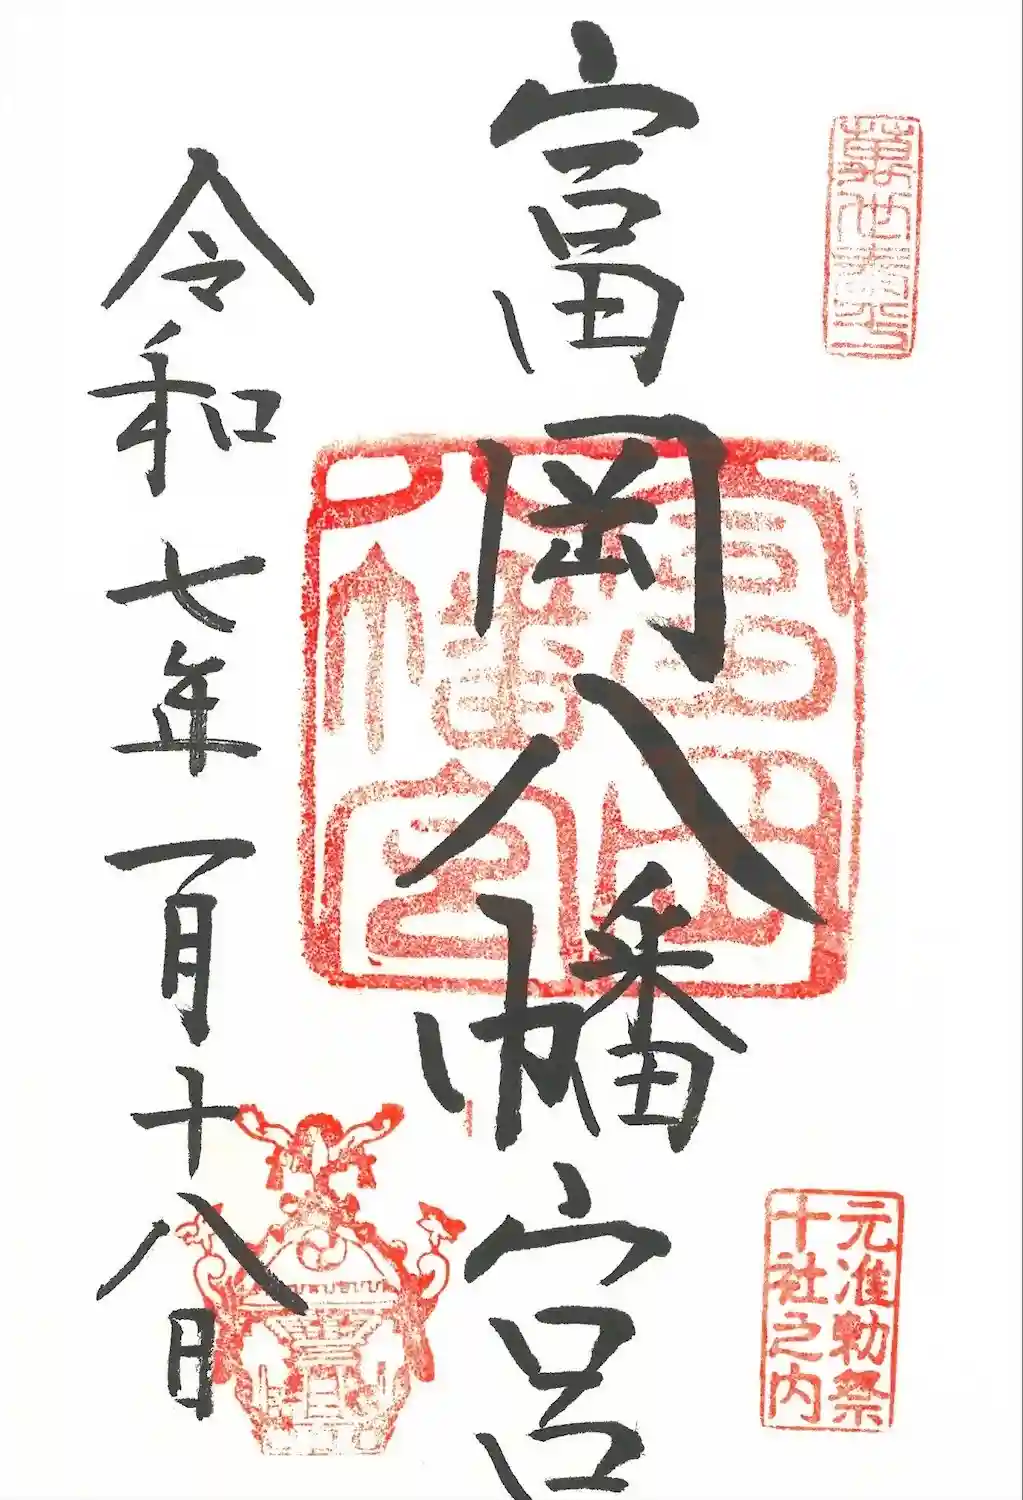 富岡八幡宮
元准勅祭
十社之内
富岡
八幡宮
令和七年一月十八日